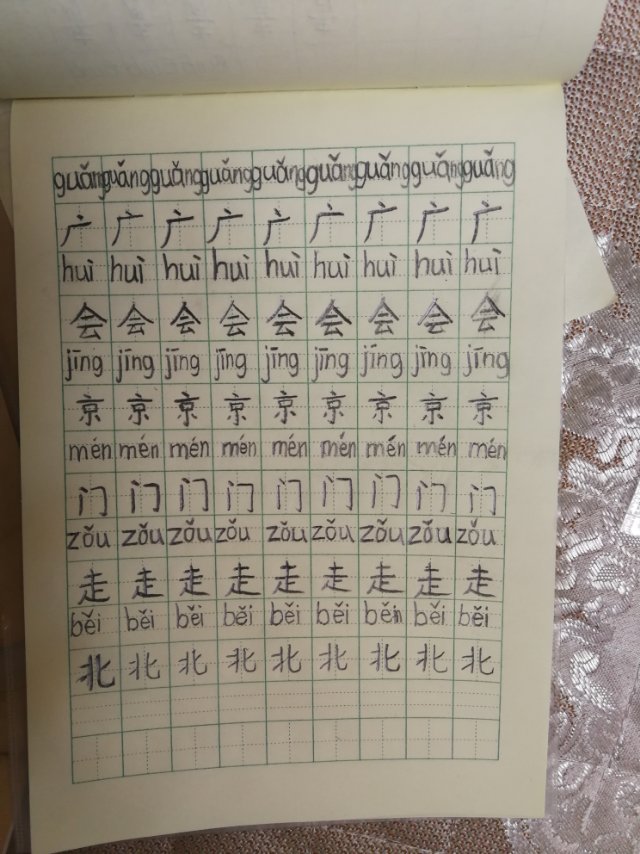 guǎng guǎng guǎng guǎng guǎng guǎng guǎng guǎng guǎng
广 广 广 广 广 广 广 广 广
huì huì huì huì huì huì huì huì huì
会 会 会 会 会 会 会 会 会
jīng jīng jīng jīng jīng jīng jīng jīng jīng
京 京 京 京 京 京 京 京 京
mén mén mén mén mén mén mén mén mén
门 门 门 门 门 门 门 门 门
zǒu zǒu zǒu zǒu zǒu zǒu zǒu zǒu zǒu
走 走 走 走 走 走 走 走 走
běi běi běi běi běi běi běin běi běi
北 北 北 北 北 北 北 北 北